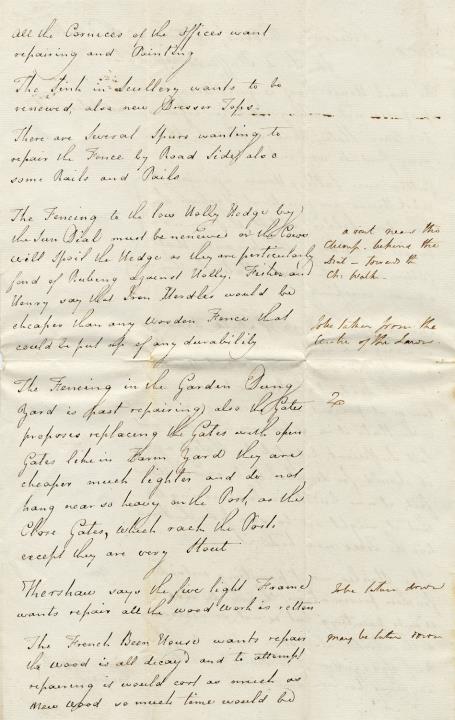 All the Cornices of the Offices want
repairing and Painting
The Sink in Scullery wants to be
renewed, also new Dresser Tops.
There are Several Spurs wanting to
repair the Fence by Road Side, also
some Rails and Pails
The Fencing to the low Holly Hedge by
the Sun Dial must be renewed or the Cows
will Spoil the Hedge as they are particularly
fond of Rubing against Holly. Fisher and
Henry say that Iron Herdles would be
cheaper than any Wooden Fence that
could be put up of any durability
a seat near this
Clump. behind the
Dial – towards the
Ch. Walk.
To be taken from the
Centre of the Lawn.
The Fencing in the Garden Dung
Yard is past repairing, also the Gates
proposes replacing the Gates with open
Gates like in Farm Yard they are
cheaper much lighter and do not
hang near so heavy on the Post, as the
Close Gates, which rack the Posts
except they are very Stout
Thershaw says the five light Frame
wants repair all the wood work is rotten
To be taken down
The French Been House wants repair
the wood is all decayd and to attempt
repairing is would cost as much as
New Wood so much time would be
may be taken down